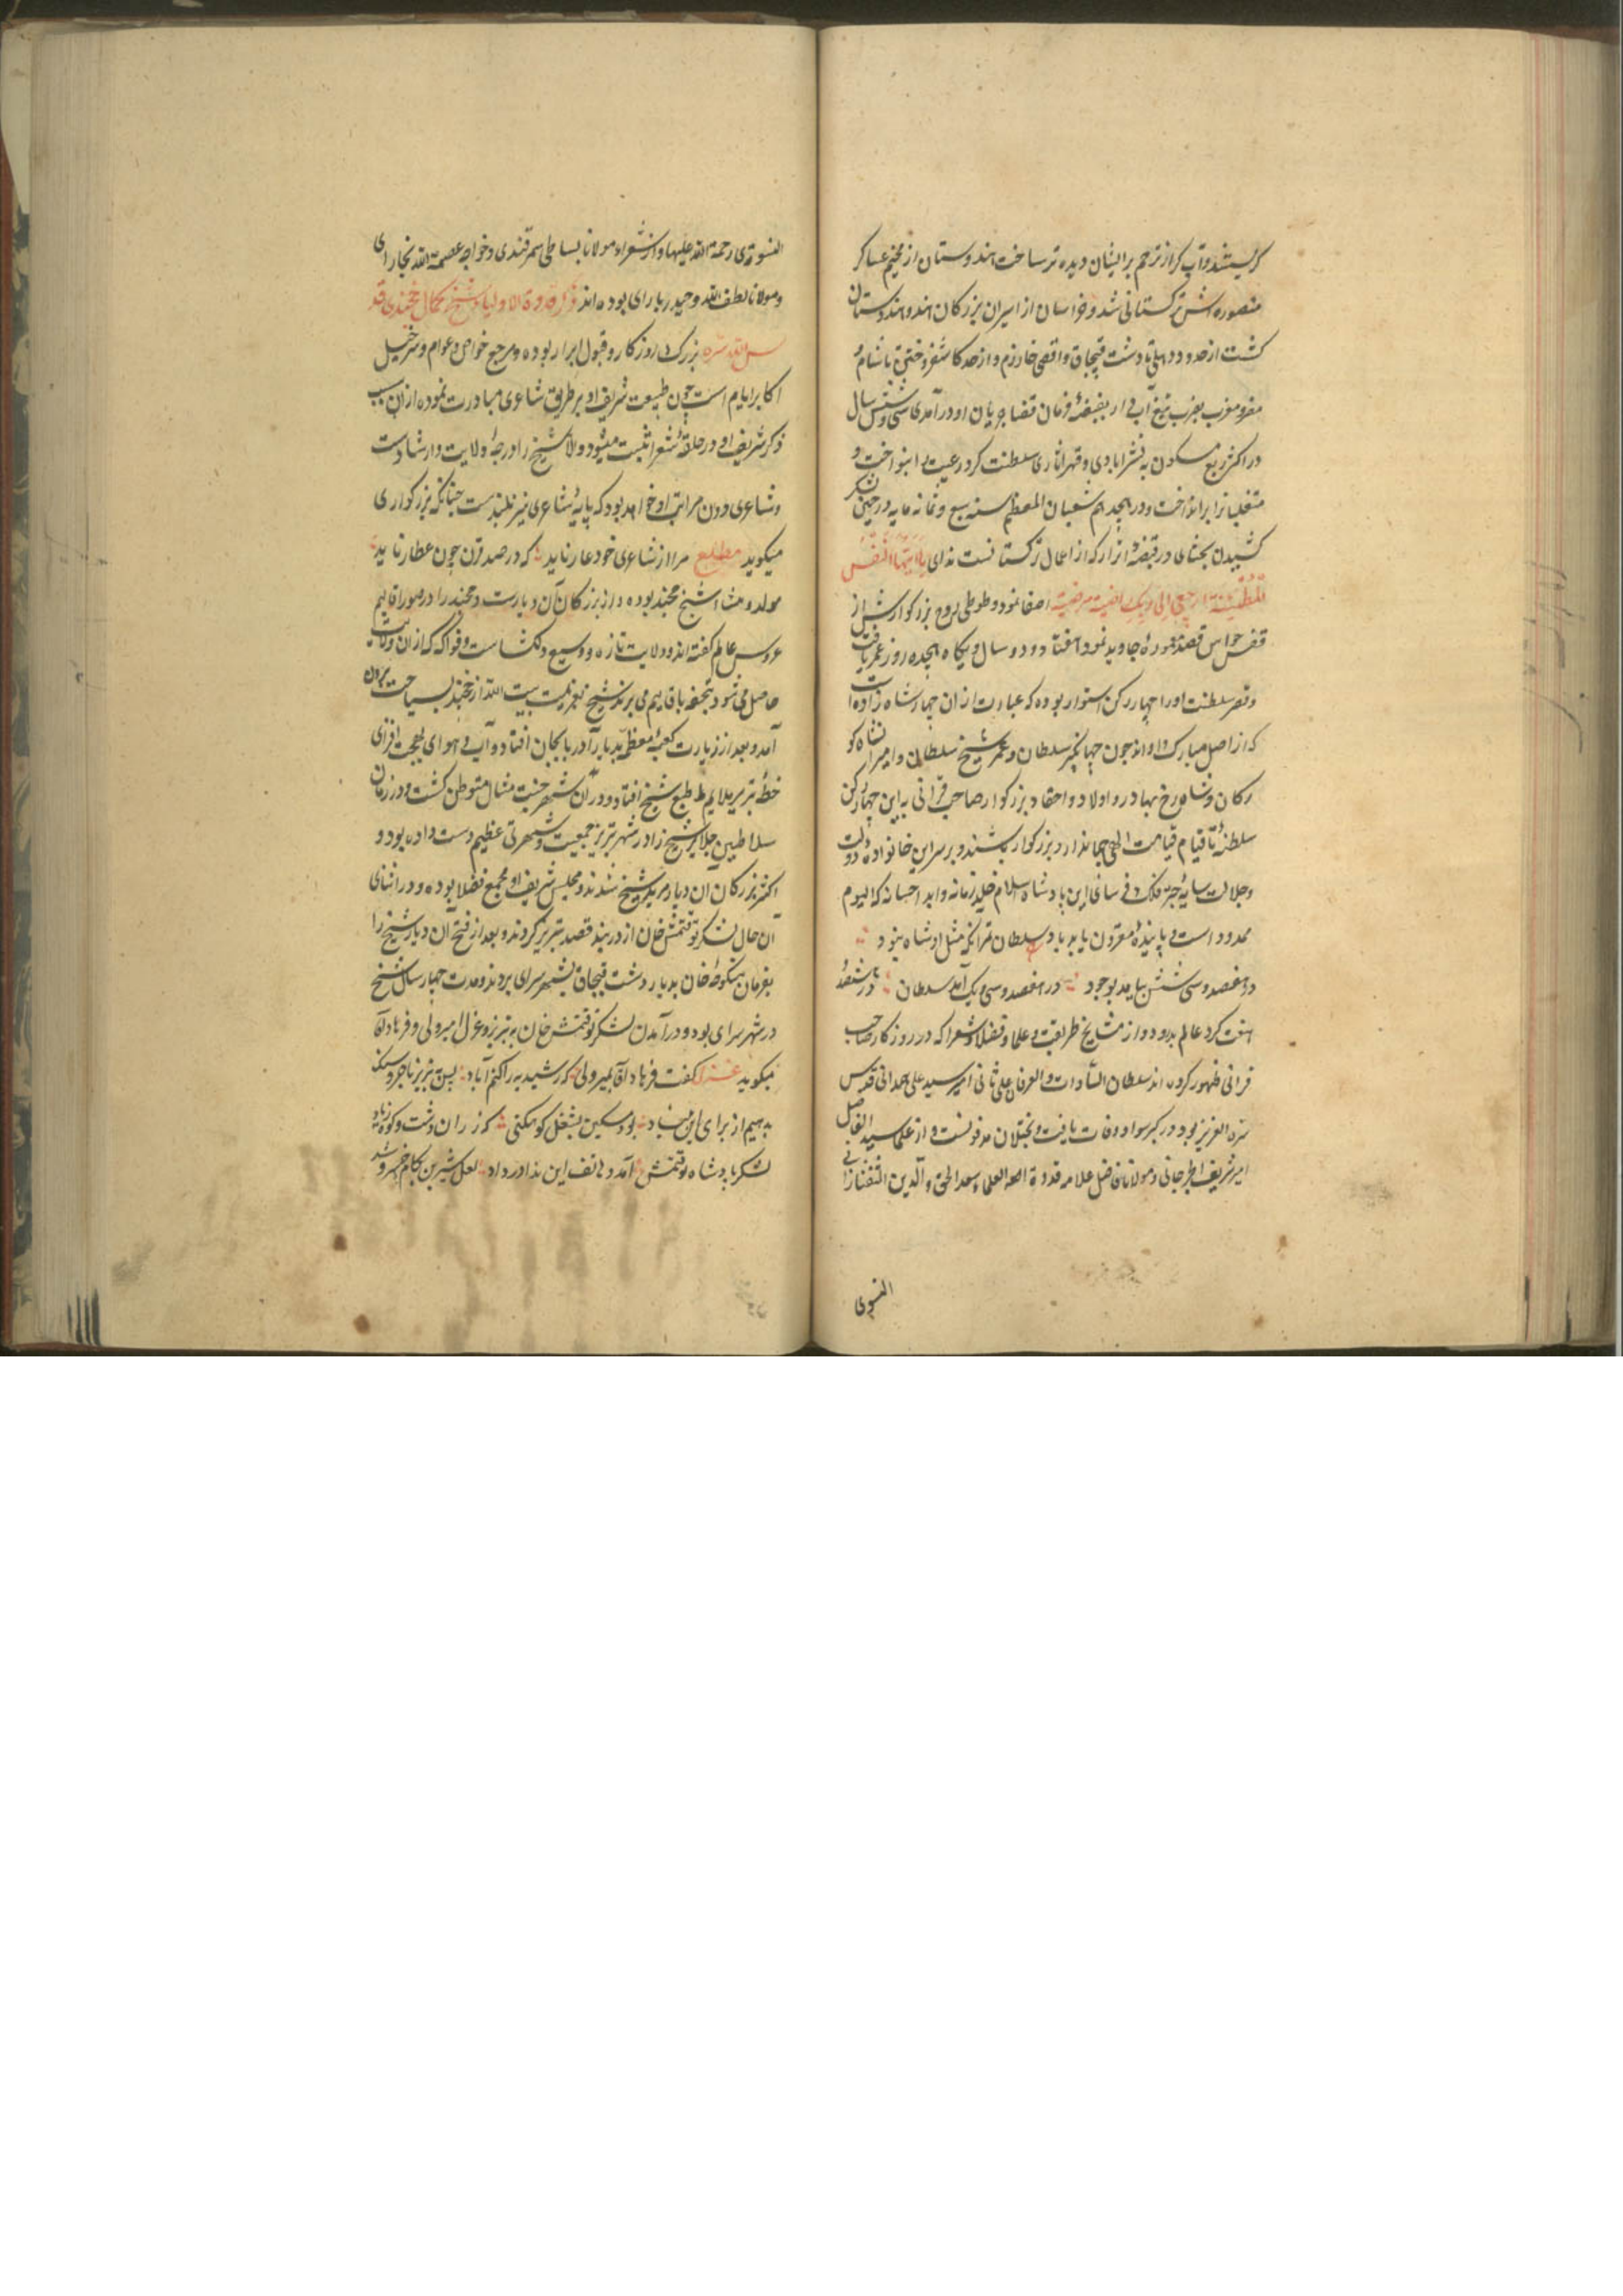 گریستند و آب گر از ترحم بر ایشان دیده تر ساخت هندوستان از مخیم عساکر
منصوره اش ترکستانی شد و خراسان از اسیران بزرگان هند و هندوستان
گشت از حدود دهلی تا دشت قبچاق و اقصی خارزم و از حد کاشغر و ختن تا شام و
مصر و مغرب بضرب تیغ آبدار بقبضهٔ فرمان قضا جریان او درآمد و سی و شش سال
در اکثر ربع مسکون به قهر سلطنت کرد رعیت را بنواخت و
متغلبانرا برانداخت و در هجدهم شعبان المعظم سنه سبع و ثمانمایه در حین لشکر
کشیدن بختای در قصبهٔ اترار که از اعمال ترکستانست ندای یا ایتها النفس
المطمئنة ارجعی الی ربک راضیة مرضیة اصغا نمود و طوطی روح بزرگوارش از
قفس حواس قصد جاوید نمود هفتاد و دو سال و یکماه هجده روز عمر یافت
و قصر سلطنت او را چهار رکن استوار بوده که عبارت از آن چهار شاهزاده است
که از اصل مبارک او اند چون جهانگیر سلطان و عمر شیخ سلطان و امیرانشاه کو
رکان و شاهرخ بهادر و اولاد و احفاد بزرگوار صاحب قرانی به این چهار رکن
سلطنهٔ تا قیام قیامت الهی جهاندار و بزرگوار باشند و بر سر این خانواده دولت
و جلالت سایهٔ این پادشاه اسلام خلد زمانه و ابد احسانه که الیوم
ممدود است پاینده و مقرون باید باد سلطان تمر آنکه مثل او شاه نبود
در هفصد و سی شش بیامد بوجود در هفصد و سی و یک آمد سلطان در هشتصد
هفت کرد عالم بدرود و از مشایخ طریقت و علما و فضلا و شعرا که در روزگار صاحب
قرانی ظهور کرده اند سلطان السادات و العرفا علی ثانی امیر سید علی همدانی قدس
سره العزیز بود در کبر سواد وفات یافت و بختلان مدفونست و از علما سید الفاضل
امیر شریف الجرجانی و مولانا فاضل علامه قدوة العلما سعد الحق و الدین التفتازانی
النسوی
النسوی رحمة الله علیهما و از شعراء مولانا بساطی سمرقندی و خواجه عصمة الله بخارای
و مولانا لطف الله و حیدر یارای بوده اند ذکر قدوة الاولیا شیخ کمال خجندی قد
س الله سره بزرگ روزگار و قبول ابرار بوده و مرجع خواص و عوام و سرخیل
اکابر ایام است چون طبیعت شریف او بر طریق شاعری مبادرت نموده از آن سبب
ذکر شریف او در حلقهٔ شعرا ثبت میشود والا شیخ را درجهٔ ولایت و ارشادست
و شاعری دون مراتب او خواهد بود که پایهٔ شاعری نیز بلندست چنانکه بزرگواری
میگوید مطلع مرا از شاعری خود عار ناید که در صد قرن چون عطار ناید
مولد و منشا شیخ خجند بوده و از بزرگان آن دیارست و خجند را در صور اقالیم
عروس عالم گفته اند و ولایت تازه و وسیع و دلگشاست و فواکه که از آن ولایت
حاصل می شود بتحفه باقالیم می برند شیخ بعزیمت بیت الله از خجند بسیاحت بیرون
آمد و بعد از زیارت کعبهٔ معظمه بدیار آذربایجان افتاد و آب و هوای بهجت افزای
خطهٔ تبریز ملایم طبع شیخ افتاد و در آن شهر جنت مثال متوطن گشت و در زمان
سلاطین جلایر شیخ را در شهر تبریز جمعیت و شهرتی عظیم دست داده بود و
اکثر بزرگان آن دیار مرید شیخ شدند و مجلس شریف او مجمع فضلا بوده و در اثنای
آن حال لشکر توقتمش خان از دربند قصد تبریز کردند و بعد از فتح آن دیار شیخ را
بفرمان منکوحهٔ خان بدیار دشت قبچاق بشهر سرای بردند و مدت چهار سال شیخ
در شهر سرای بود و در آمدن لشکر توقتمش خان به تبریز و غزل امیر ولی و فرهاد آقا
میگوید غزل گفت فرهاد آقا بمیر ولی که رشیدیه را کنم آباد پس تبریز ناجر و سنک
بدهیم از برای این بنیاد بود مسکین بشغل کوهکنی که ز ران دشت و کوه زیاد
لشکر پادشاه توقتمش آمد و هاتف این ندا در داد لعل شیرین بکام خسرو شد